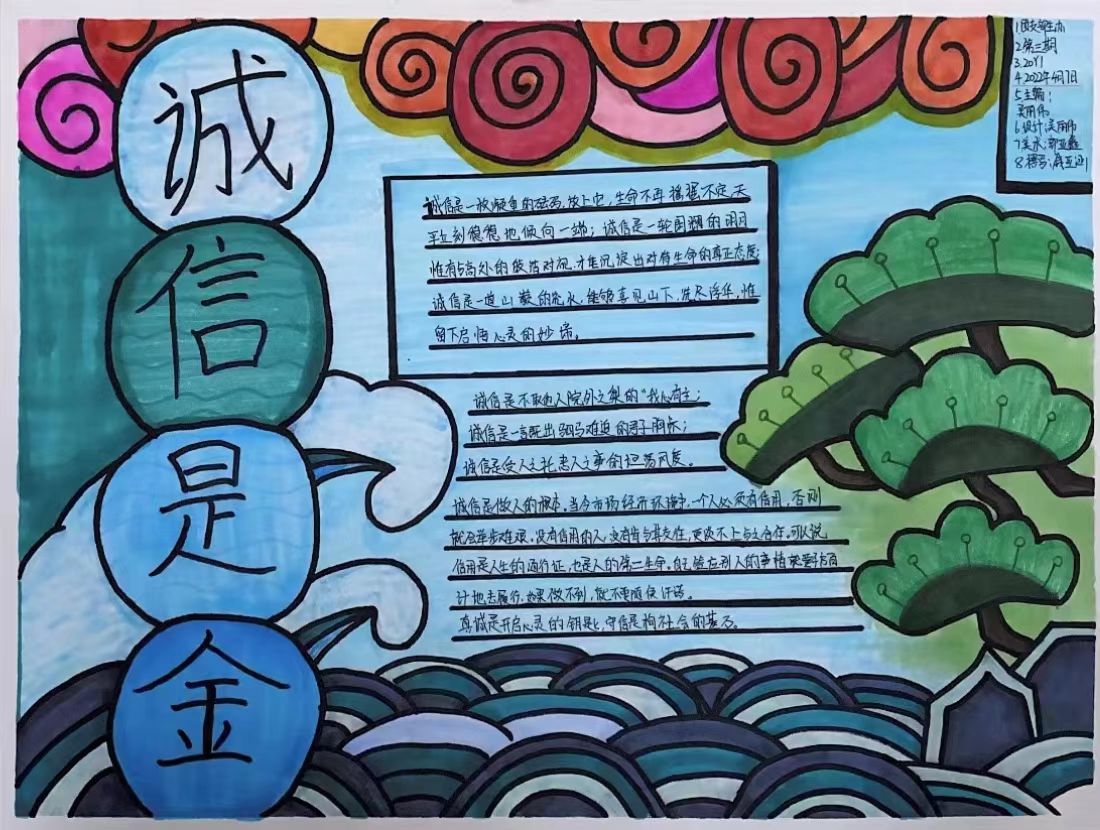 诚
信
是
金
诚信是一枚凝重的砝码,放上它,生命不再摇摆不定,天
平立刻稳稳地倾向一端;诚信是一轮圆润的明月
惟有与高处的皎洁对视,才能沉淀出对待生命的真正态度;
诚信是一道山巅的流水,能够直见山下,洗尽浮华,惟
留下启悟心灵的妙谛。
诚信是不取他人院外之梨的"我心有主;
诚信是一言既出驷马难追的君子
诚信是受人之托忠人之事的坦荡风度。
诚信是做人的根本。当今市场经济环境中,一个人必须有信用,否则
就会举步难艰。没有信用的人,没有肯与其交往,更谈不上与之合作。可以说
信用是人生的通行证,也是人的第二生命。自己答应别人的事情就要千方百
计地去履行,如果做不到,就不要随便许诺。
真诚是开启心灵的钥匙,守信是构社会的基石。
1.团支部主办
2.第三期
3.20Y1
4.2022年4月7日
5.主编:
吴雨伟
6.设计:吴雨伟
7.美术:郭亚鑫
8.